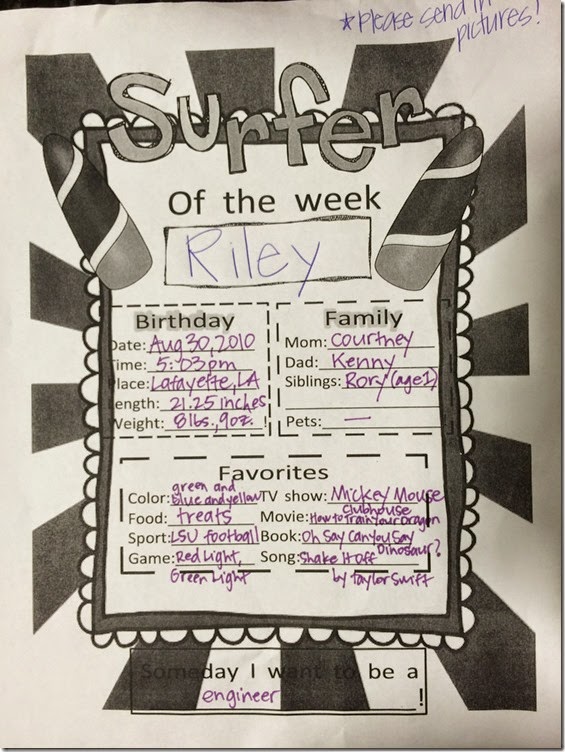 *Please send in
pictures!
Surfer
Of the week
Riley
Birthday
Date: Aug 30, 2010
Time: 5:03pm
Place: Lafayette, LA
Length: 21.25 inches
Weight: 8lbs., 9oz. !
Family
Mom: Courtney
Dad: Kenny
Siblings: Rory (age 1)
Pets: —
Favorites
green and
Color: blue and yellow
Food: treats
Sport: LSU football
Game: Red Light,
Green Light
TV show: Mickey Mouse
Clubhouse
Movie: How to Train Your Dragon
Book: Oh Say Can You Say
Dinosaur?
Song: Shake It Off
by Taylor Swift
Someday I want to be a
engineer !